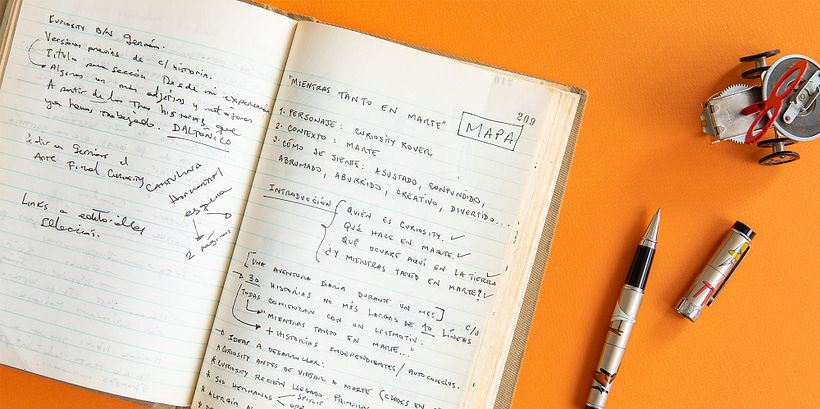 CURIOSITY DAS German.
Versiones previas de c/historia.
Título para sección Desde mi experiencia
Algunas un más
A partir de las tres historias que
ya hemos trabajado. DALTÓNICO
Arte Final Curiosity CARTULINA
HORIZONTAL/
esquina
2 páginas
Links a editoriales
selección.
209
"MIENTRAS TANTO EN MARTE"
MAPA
1. PERSONAJE: CURIOSITY ROVER
2. CONTEXTO: MARTE
3. CÓMO SE SIENTE: ASUSTADO, CONFUNDIDO,
ABRUMADO, ABURRIDO, CREATIVO, DIVERTIDO...
INTRODUCCIÓN
QUIÉN ES CURIOSITY. ✓
QUÉ HACE EN MARTE ✓
QUÉ OCURRE AQUÍ EN LA TIERRA ✓
¿Y MIENTRAS TANTO EN MARTE? ✓
[UNA AVENTURA DIARIA DURANTE UN MES]
→ 30 HISTORIAS NO MÁS LARGAS DE 10 LÍNEAS c/u
TODAS COMIENZAN CON UN LEITMOTIV:
MIENTRAS TANTO EN MARTE..."
+ HISTORIAS INDEPENDIENTES / AUTOCONCLUS.
IDEAS A DESARROLLAR:
CURIOSITY ANTES DE VIAJAR A MARTE (
CURIOSITY RECIÉN LLEGADO.
SUS HERMANOS SPIRIT
ALERGIA AL